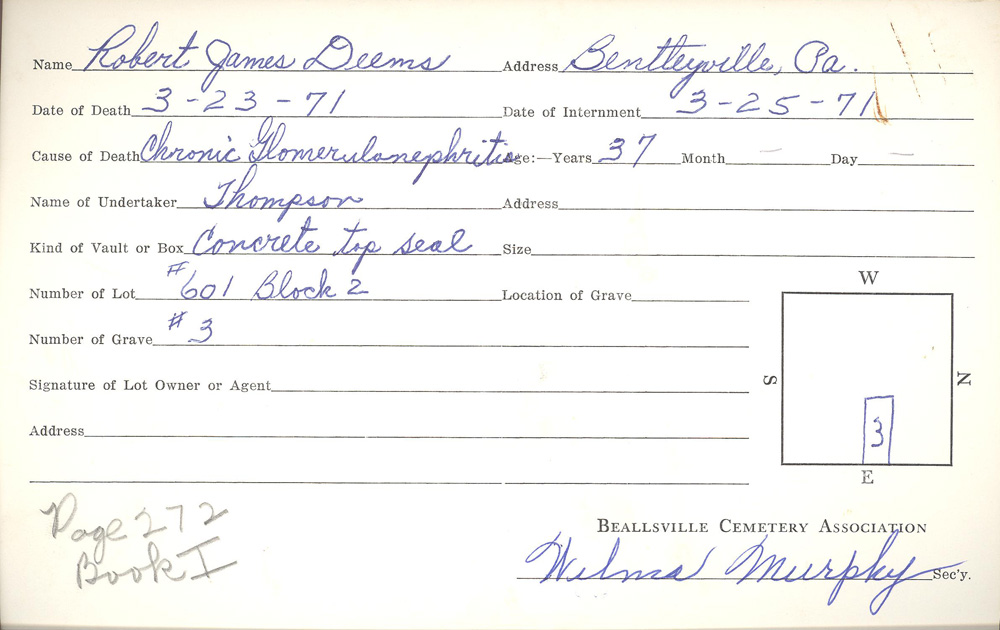 Name Robert James Deems Address Bentleyville, Pa.
Date of Death 3-23-71 Date of Internment 3-25-71
Cause of Death Chronic Glomerulonephritis Age:—Years 37 Month — Day —
Name of Undertaker Thompson Address
Kind of Vault or Box Concrete top seal Size
Number of Lot #601 Block 2 Location of Grave
Number of Grave #3
Signature of Lot Owner or Agent
Address
W
S
N
3
E
Page 272
Book I
Beallsville Cemetery Association
Wilma Murphy Sec'y.